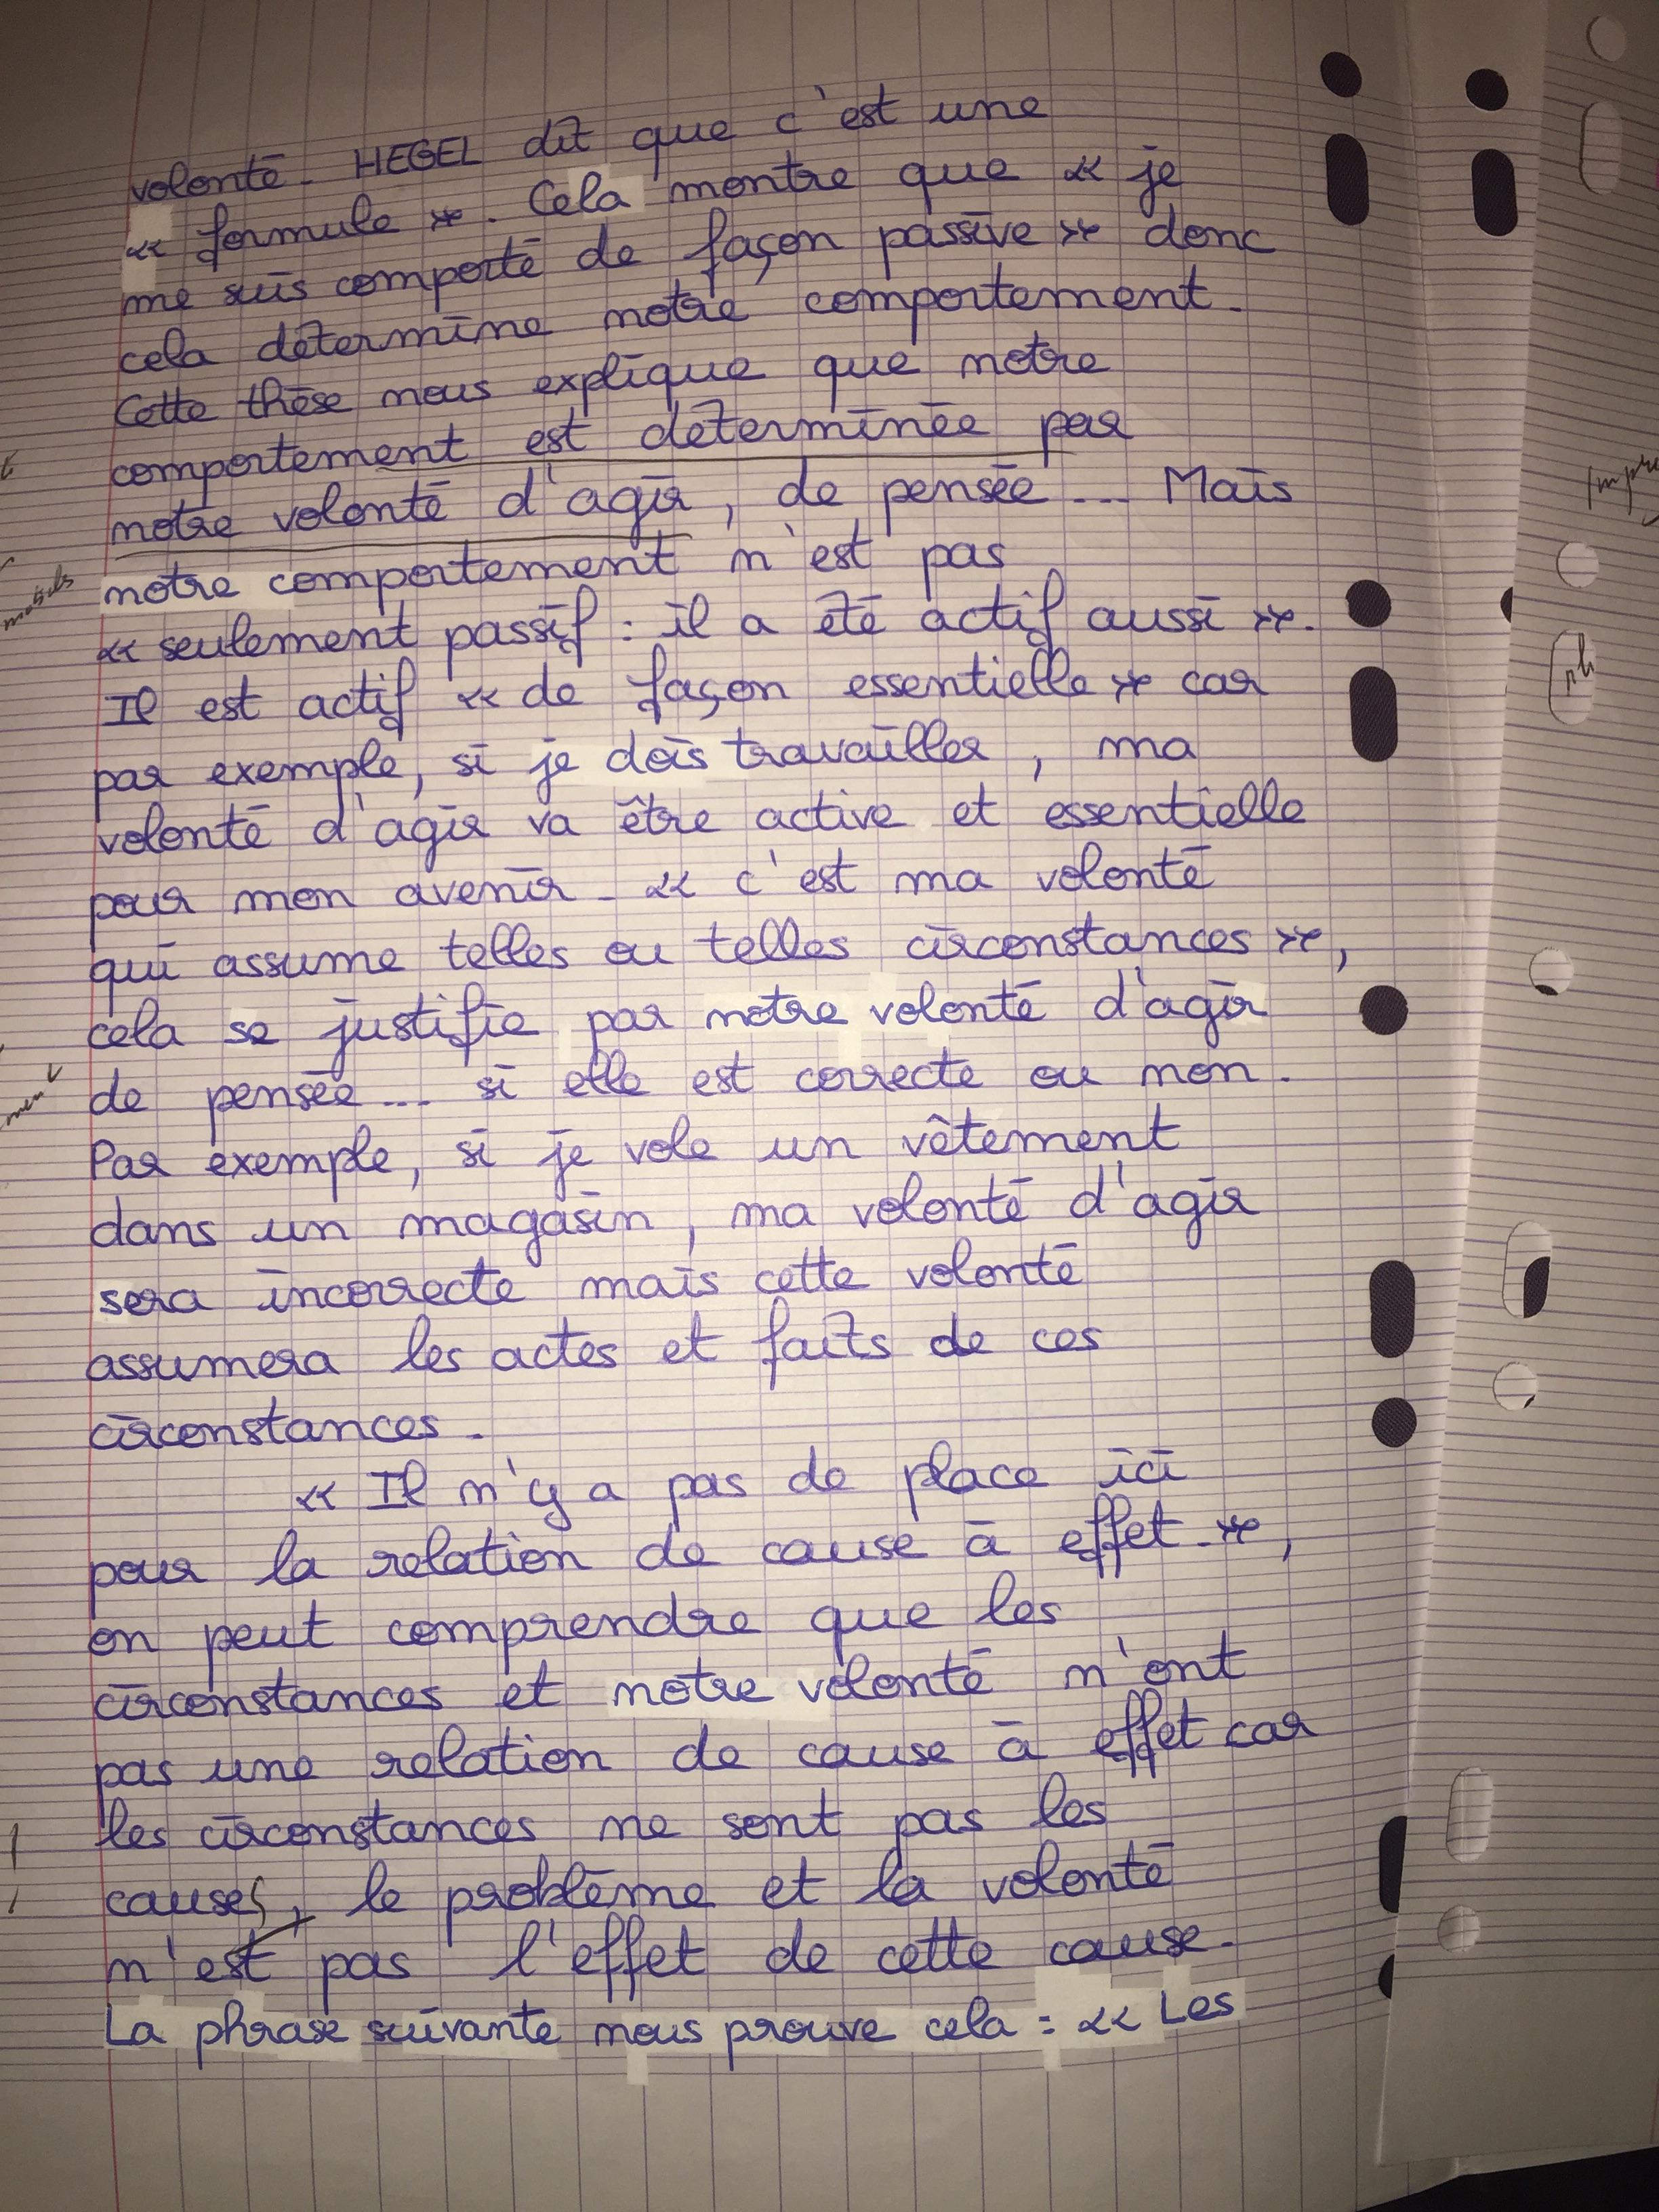 volonté. HEGEL dit que c'est une
« formule ». Cela montre que « je
me suis comporté de façon passive » donc
cela détermine notre comportement.
Cette thèse nous explique que notre
comportement est déterminée par
notre volonté d'agir, de pensée... Mais
notre comportement n'est pas
« seulement passif : il a été actif aussi ».
Il est actif « de façon essentielle » car
par exemple, si je dois travailler, ma
volonté d'agir va être active et essentielle
pour mon avenir. « c'est ma volonté
qui assume telles ou telles circonstances »,
cela se justifie par notre volonté d'agir
de pensée... si elle est correcte ou non.
Par exemple, si je vole un vêtement
dans un magasin, ma volonté d'agir
sera incorrecte mais cette volonté
assumera les actes et faits de ces
circonstances.
« Il n'y a pas de place ici
pour la relation de cause à effet. »,
on peut comprendre que les
circonstances et notre volonté n'ont
pas une relation de cause à effet car
les circonstances ne sont pas les
causes, le problème et la volonté
n'est pas l'effet de cette cause.
La phrase suivante nous prouve cela : « Les